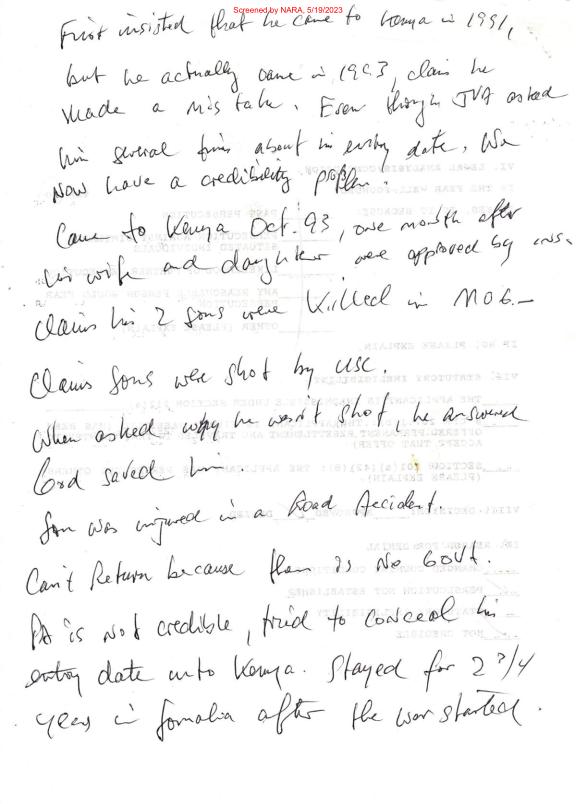 Screened by NARA, 5/19/2023
First insisted that he came to Kenya in 1991,
but he actually came in 1993, claim he
made a mistake. Even though JVA asked
him several times about his entry date. We
now have a credibility problem.
Came to Kenya Oct. 93, one month after
his wife and daughter were approved by INS.
Claims his 2 sons were killed in MOG.
Claims sons were shot by USC.
When asked why he wasn't shot, he answered
Lord saved him
Son was injured in a Road Accident.
Can't Return because there is No Govt.
PA is not credible, tried to conceal his
entry date into Kenya. Stayed for 2 3/4
years in Somalia after the war started.